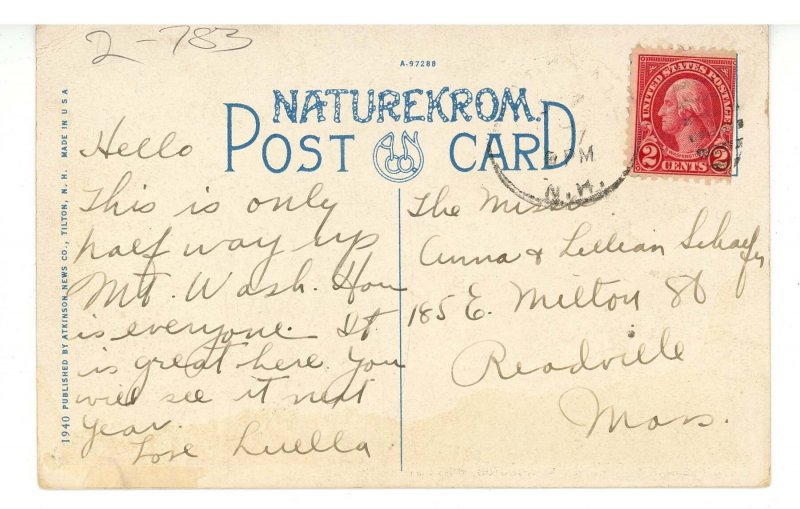 2-783
A-97288
NATUREKROM
POST CARD
UNITED STATES POSTAGE
2 CENTS 2
PM
N.H.
1940 PUBLISHED BY ATKINSON NEWS CO., TILTON, N. H. MADE IN U S A
Hello
This is only
half way up
Mt. Wash. How
is everyone. It
is great here. You
will see it next
year.
Love Luella.
The Misses
Anna & Lillian
185 E. Milton St
Readville
Mass.